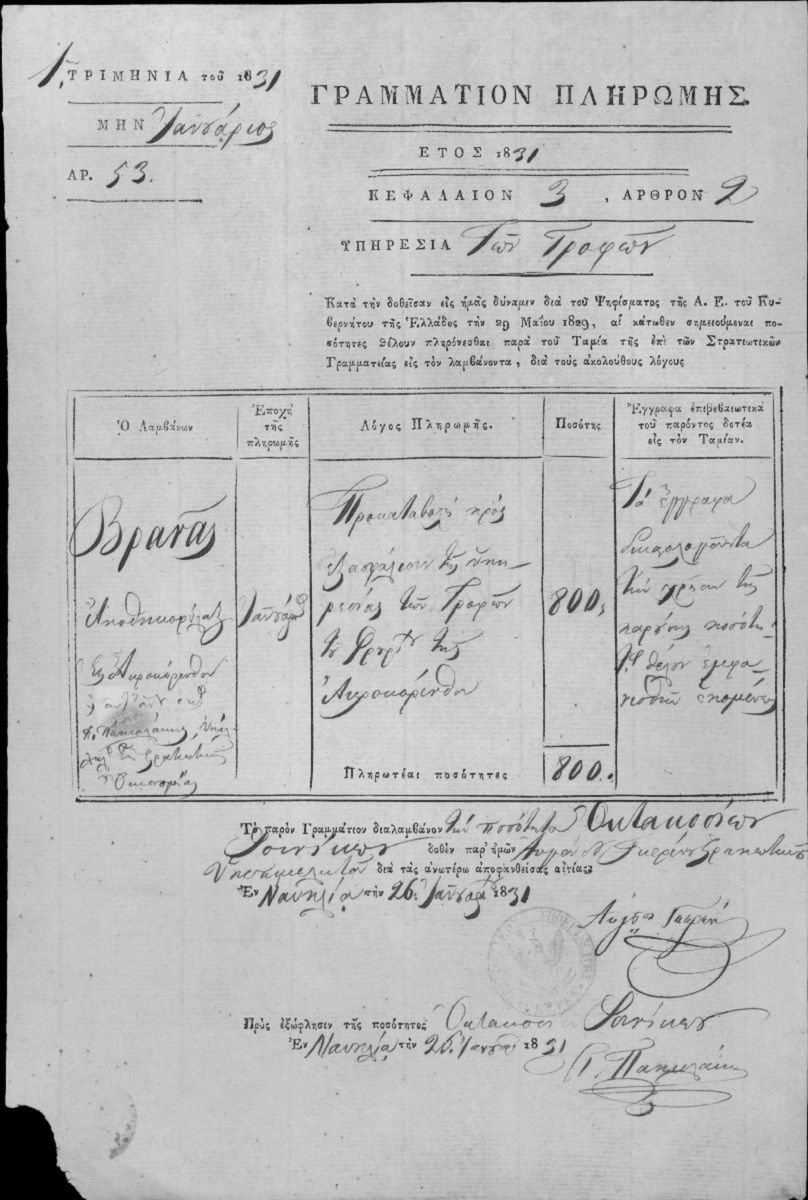 1, ΤΡΙΜΗΝΙΑ τοῦ 1831
ΜΗΝ Ἰανουάριος
ΑΡ. 53.
ΓΡΑΜΜΑΤΙΟΝ ΠΛΗΡΩΜΗΣ.
ΕΤΟΣ 1831
ΚΕΦΑΛΑΙΟΝ 3 , ΑΡΘΡΟΝ 2
ΥΠΗΡΕΣΙΑ Τῶν Τροφῶν
Κατὰ τὴν δοθεῖσαν εἰς ἡμᾶς δύναμιν διὰ τοῦ Ψηφίσματος τῆς Α. Ε. τοῦ Κυ-
βερνήτου τῆς Ἑλλάδος τὴν 29 Μαΐου 1829, αἱ κάτωθεν σημειούμεναι πο-
σότητες θέλουν πληρόνεσθαι παρὰ τοῦ Ταμία τῆς ἐπὶ τῶν Στρατιωτικῶν
Γραμματείας εἰς τὸν λαμβάνοντα, διὰ τοὺς ἀκολούθους λόγους
Ὁ Λαμβάνων
Ἐποχὴ
τῆς
πληρωμῆς
Λόγος Πληρωμῆς.
Ποσότης
Ἔγγραφα ἐπιβεβαιωτικὰ
τοῦ παρόντος δοτέα
εἰς τὸν Ταμίαν.
Βρανᾶς
Ἀποθηκοφύλαξ
τῆς Ἀκροκορίνθου
Ἰανουάρ
Προκαταβολὴ πρὸς
ἐξασφάλισιν τῆς ὑπη-
ρεσίας τῶν Τροφῶν
τοῦ Φρουρίου τῆς
Ἀκροκορίνθου
800,
Τὰ ἔγγραφα
δικαιολογοῦντα
τὴν χρῆσιν τῆς
παρούσης ποσότη
θέλουν ἐμφα-
νισθῆ ἑπομένως
Πληρωτέαι ποσότητες
800.
Τὸ παρὸν Γραμμάτιον διαλαμβάνον τὴν ποσότητα Ὀκτακοσίων
Φοινίκων δοθὲν παρ' ἡμῶν
διὰ τὰς ἀνωτέρω ἀποφανθείσας αἰτίας
Ἐν Ναυπλίᾳ τὴν 26. Ἰανουαρ 1831
Πρὸς ἐξώφλησιν τῆς ποσότητος Ὀκτακοσίων Φοινίκων
Ἐν Ναυπλίᾳ τὴν 26. Ἰανουαρ 1831